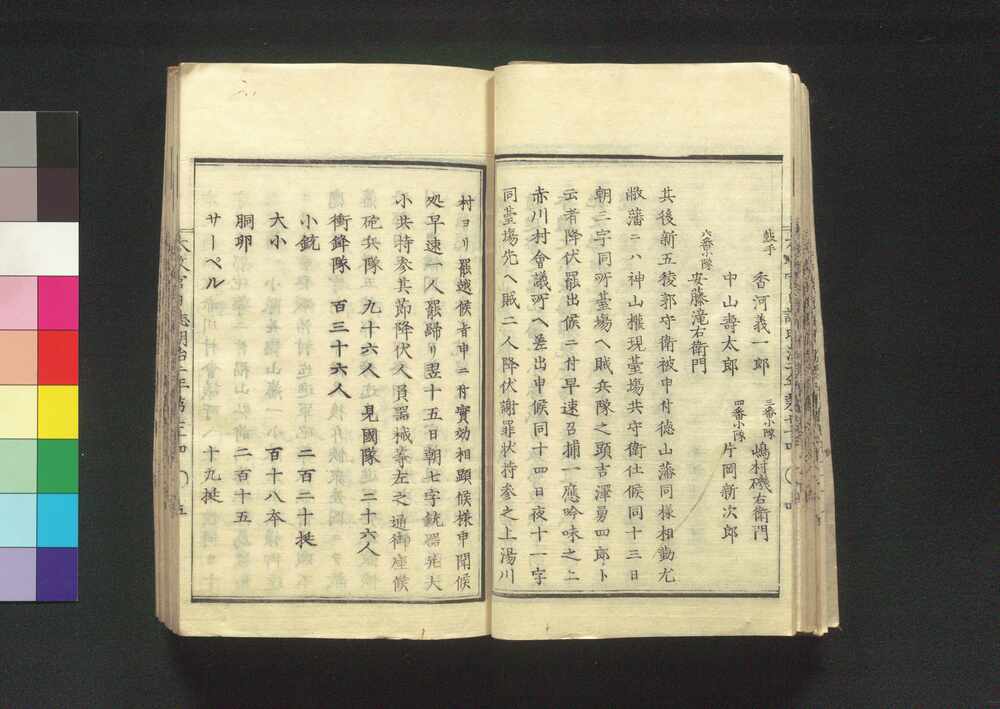 鼓手
香河義一郎
三番小隊
嶋村礒右衛門
中山壽太郎
四番小隊
片岡新次郎
六番小隊
安藤滝右衛門
其後新五稜郭守衛被申付徳山藩同様相勤尤
敝藩ニハ神山權現䑓塲共守衛仕候同十三日
朝三字同所䑓塲ヘ賊兵隊之頭吉澤勇四郎ト
云者降伏罷出候ニ付早速召捕一應吟味之上
赤川村會議所ヘ差出申候同十四日夜十一字
同䑓塲先ヘ賊二人降伏謝罪状持参之上湯川
村ヨリ罷越候旨申ニ付實効相顕候様申聞候
処早速一人罷歸リ翌十五日朝七字銃器兎大
小共持参其節降伏人員器械等左之通御座候
砲兵隊　九十六人　見國隊　二十六人
衝鋒隊　百三十六人
小銃　二百二十挺
大小　百十八本
胴卵　二百十五
サーベル　十九挺
太政官日誌明治二年第
五